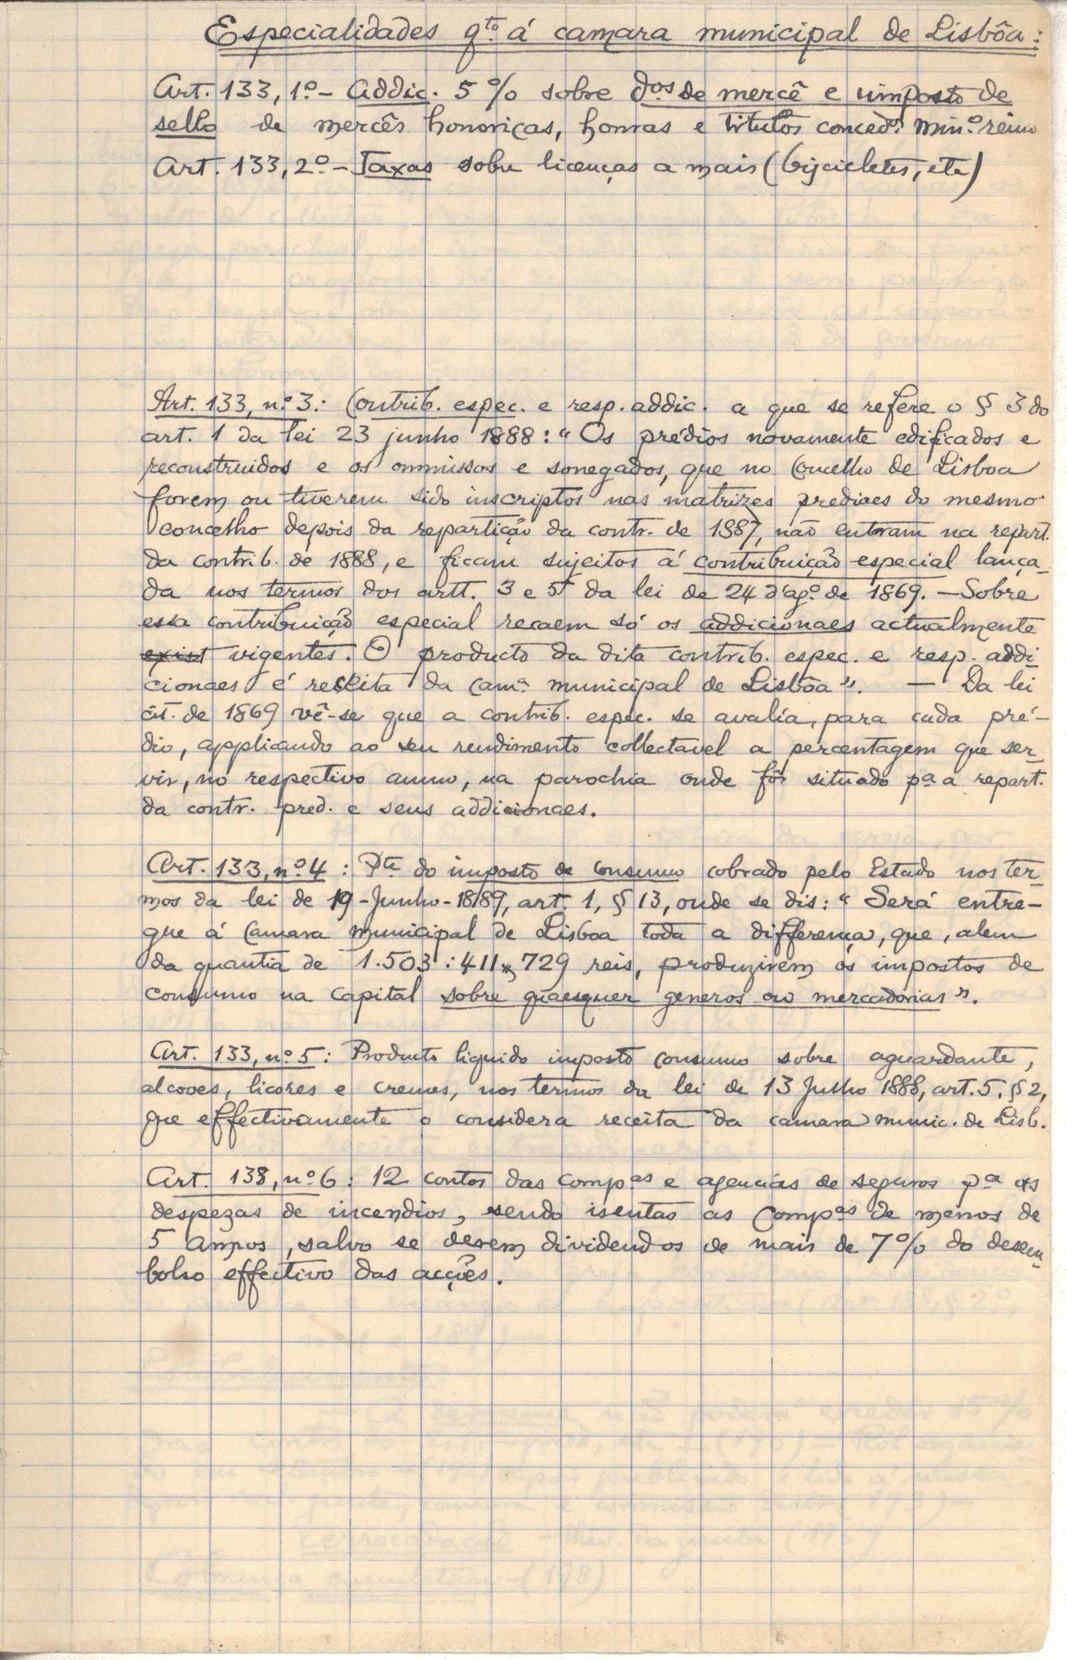 Especialidades qto á camara municipal de Lisbôa:
Art. 133, 1º - Addic. 5% sobre dos de mercê e imposto de
sello de mercês honoricas, honras e titulos conced. Minº reino
Art. 133, 2º - Taxas sobre licenças a mais (bijcicletes, etc)
Art. 133, nº 3: Contrib. espec. e resp. addic. a que se refere o § 3 do
art. 1 da lei 23 junho 1888: "Os prédios novamente edificados e
reconstruidos e os ommissos e sonegados, que no concelho de Lisboa
forem ou tiverem sido inscriptos nas matrizes prediaes do mesmo
concelho depois da repartição da contr. de 1887, não entram na repart.
da contrib. de 1888, e ficam sujeitos á contribuição especial lança-
da nos termos dos artt. 3 e 5 da lei de 24 d'agº de 1869. — Sobre
essa contribuição especial recaem só os addicionaes actualmente
exist vigentes. O producto da dita contrib. espec. e resp. addi-
cionaes é receita da camª municipal de Lisbôa". — Da lei
cit. de 1869 vê-se que a contrib. espec. se avalia, para cada pré-
dio, applicando ao seu rendimento collectavel a percentagem que ser-
vir, no respectivo anno, na parochia onde fôr situado pª a repart.
da contr. pred. e seus addicionaes.
Art. 133, nº 4: Pte do imposto de consumo cobrado pelo Estado nos ter-
mos da lei de 19-Junho-1889, art. 1, § 13, onde se dis: "Será entre-
gue á Camara Municipal de Lisboa toda a differença, que, alem
da quantia de 1.503:411$729 reis, produzirem os impostos de
consumo na capital sobre quaesquer generos ou mercadorias".
Art. 133, nº 5: Producto liquido imposto consumo sobre aguardante,
alcooes, licores e cremes, nos termos da lei de 13 Julho 1888, art. 5, § 2,
que effectivamente o considera receita da camara munic. de Lisb.
Art. 133, nº 6: 12 contos das compas e agencias de seguros pª as
despezas de incendios, sendo isentas as Compas de menos de
5 annos, salvo se derem dividendos de mais de 7% do desem-
bolso effectivo das acções.